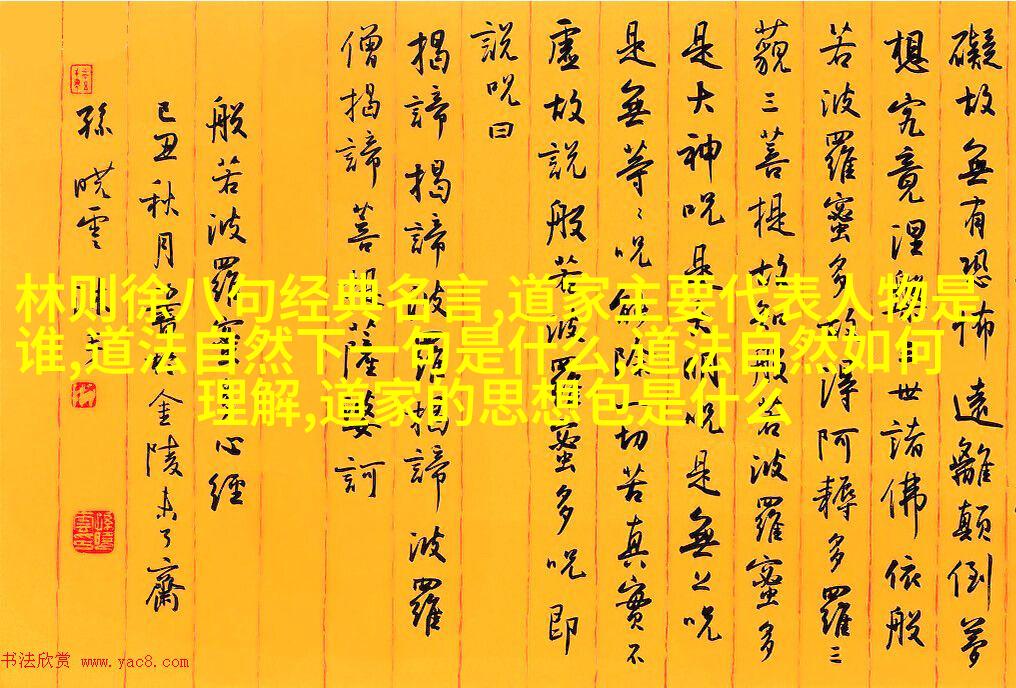 礙故無有恐怖遠離顛倒夢
想究竟涅槃三世諸佛依般
若波羅蜜多故得阿耨多羅三
藐三菩提故知般若波羅蜜多
是大神呪是大明呪是無上呪
是無等〻呪能除一切苦真實不
虛故説般若波羅蜜多呪即
説呪曰
揭諦揭諦波羅揭諦波羅
僧揭諦菩提薩婆訶
般若波羅蜜多心經
己丑秋月於金陵未了齋
孫曉雲
林则徐八句经典名言,道家主要代表人物是
谁,道法自然下一句是什么,道法自然如何
理解,道家的思想包是什么
书法欣赏 www.yac8.com